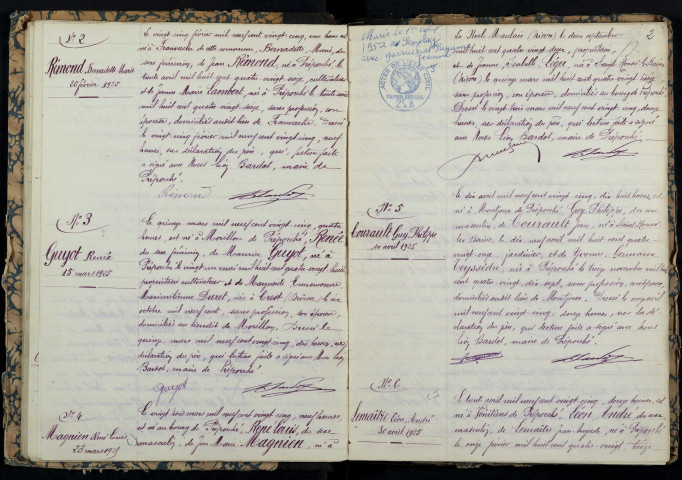 N° 2
Rémond Bernadette Marie
25 février 1925
Le vingt cinq février mil neuf cent vingt cinq, une heure est
né à Franvache de cette commune, Bernadette, Marie, du
sexe féminin, de Jean Rémond, né à Préporché le
trente avril mil huit cent quatre vingt seize, cultivateur
et de Jeanne Marie Lambert, né à Préporché le trente août
mil huit cent quatre vingt seize, sans profession, son
épouse, domiciliés audit lieu de Franvache. Dressé
le vingt cinq février mil neuf cent vingt cinq, neuf
heures, sur déclaration du père, qui, lecture faite
a signé avec Nous Léon Bardot, maire de
Préporché.
Rémond
N° 3
Guyot Renée
15 mars 1925
Le quinze mars mil neuf cent vingt cinq, quatre
heures, est né à Morillon de Préporché, Renée
du sexe féminin, de Maurice Guyot, né à
Préporché le vingt un mai mil huit cent quatre vingt
propriétaire cultivateur et de Marguerite
Maximilienne Duret, née à Crest (Drôme) le
octobre mil neuf cent, sans profession, son épouse,
domiciliés au lieudit de Morillon. Dressé le
quinze mars mil neuf cent vingt cinq, dix heures, sur
déclaration du père, qui lecture faite a signé avec Nous Léon
Bardot, maire de Préporché.
Guyot
N° 4
Magnien René Louis
23 mars 1925
Le vingt trois mars mil neuf cent vingt cinq, neuf heures
est né au bourg de Préporché, René Louis, du sexe
masculin, de Jean Marie Magnien, né à
Marié le
1952 à
avec
ACTES DE L'ÉTAT CIVIL
PAPIER SPÉCIAL
2
le deux septembre
mil huit cent quatre vingt deux, propriétaire,
et de Jeanne Isabelle Léger, née à Saint Honoré les Bains
(Nièvre) le quinze mars mil huit cent quatre vingt
sans profession, son épouse, domiciliés au bourg de Préporché
Dressé le vingt trois mars mil neuf cent vingt cinq, onze
heures sur déclaration du père, qui lecture faite a signé
avec Nous Léon Bardot, maire de Préporché.
N° 5
Courault Guy Philippe
10 avril 1925
Le dix avril mil neuf cent vingt cinq, dix huit heures, est
né à Montjean de Préporché, Guy Philippe, du sexe
masculin, de Courault Jean, né à Saint Honoré
les Bains, le dix neuf avril mil huit cent quatre
vingt onze, jardinier, et de Yvonne Germaine
née à Préporché le onze novembre mil huit
cent quatre vingt dix sept, sans profession, son épouse,
domiciliés audit lieu de Montjean. Dressé le onze avril
mil neuf cent vingt cinq, douze heures, sur la dé-
claration du père, qui lecture faite a signé avec Nous
Léon Bardot, maire de Préporché.
N° 6
Lemaître Léon André
30 avril 1925
Le trente avril mil neuf cent vingt cinq, douze heures, est
né à de Préporché, Léon André du sexe
masculin, de Lemaître Jean né à Préporché
le onze février mil huit cent quatre-vingt treize